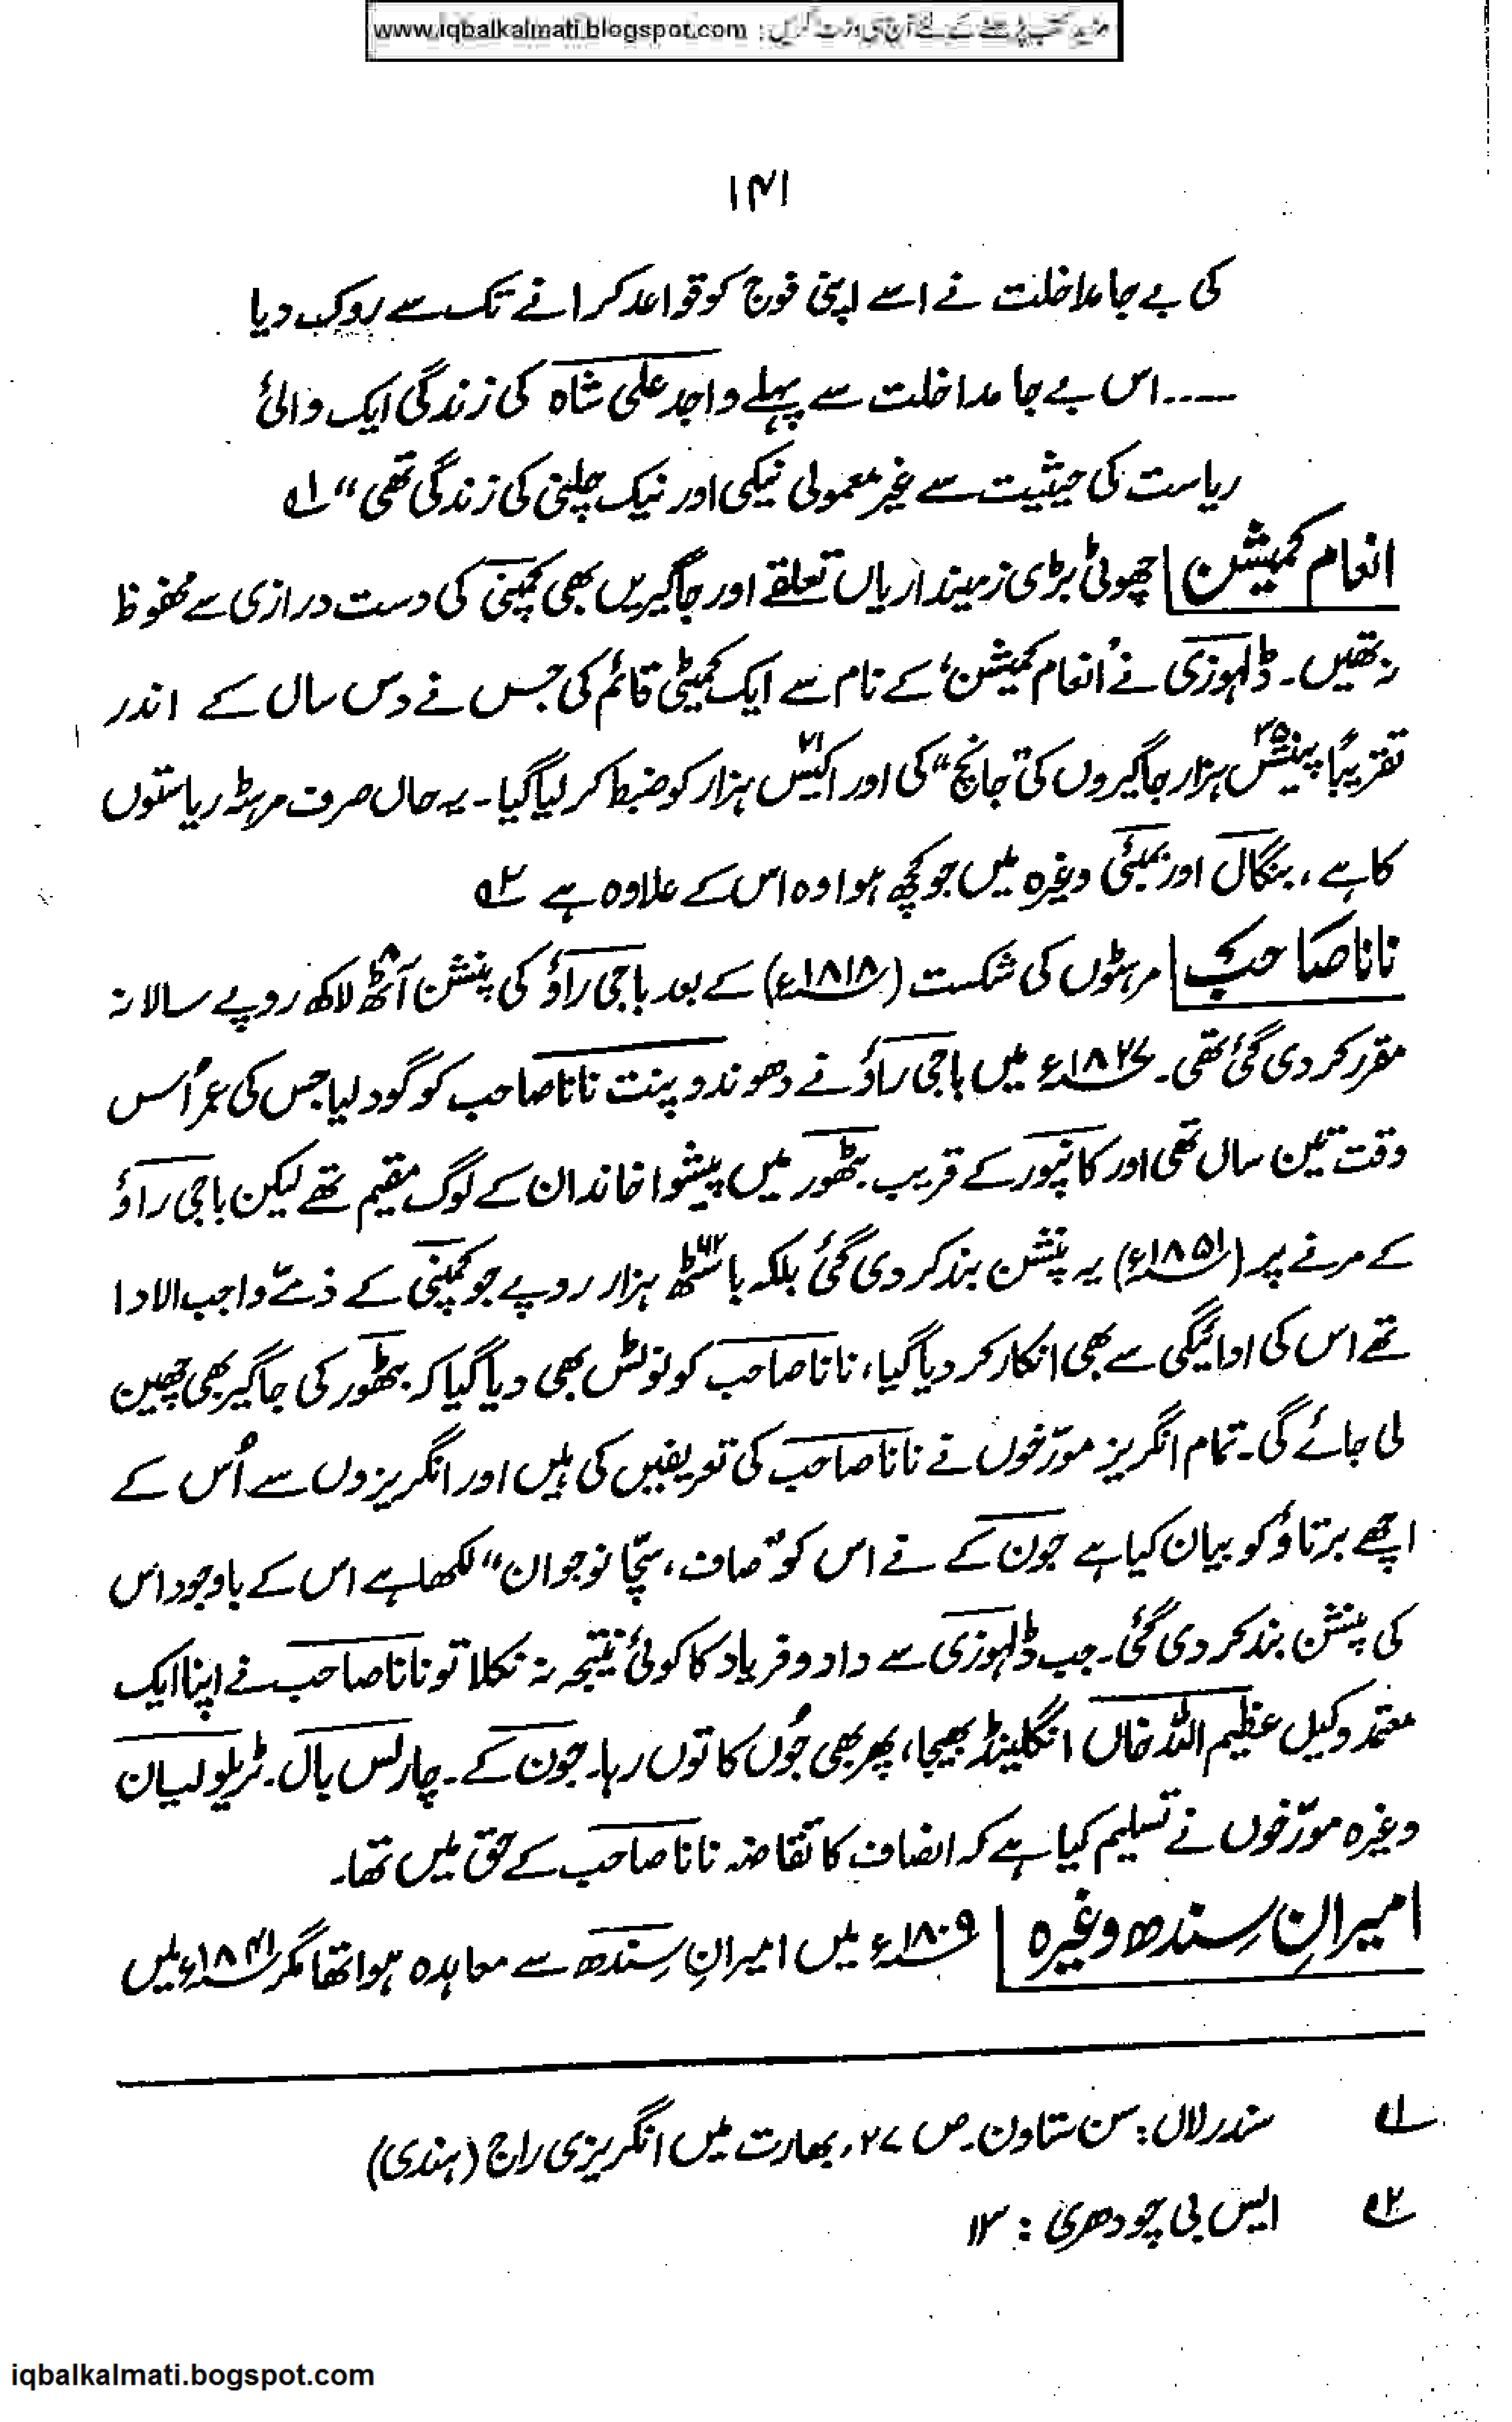 مزید کتب پڑھنے کے لئے آج ہی وزٹ کریں : www.iqbalkalmati.blogspot.com
۱۴۱
کی بے جا مداخلت نے اسے اپنی فوج کو قواعد کرانے تک سے روک دیا
۔۔۔۔۔ اس بے جا مداخلت سے پہلے واجد علی شاہ کی زندگی ایک والئ
ریاست کی حیثیت سے غیر معمولی نیکی اور نیک چلنی کی زندگی تھی“ ۱؎
انعام کمیشن چھوٹی بڑی زمینداریاں تعلقے اور جاگیریں بھی کمپنی کی دست درازی سے محفوظ
نہ تھیں۔ ڈلہوزی نے ’انعام کمیشن‘ کے نام سے ایک کمیٹی قائم کی جس نے دس سال کے اندر
تقریباً پینتیس ۳۵ ہزار جاگیروں کی ”جانچ“ کی اور اکیس ۲۱ ہزار کو ضبط کر لیا گیا۔ یہ حال صرف مرہٹہ ریاستوں
کا ہے، بنگال اور بمبئی وغیرہ میں جو کچھ ہوا وہ اس کے علاوہ ہے ۲؎
نانا صاحب مرہٹوں کی شکست (۱۸۱۸ء) کے بعد باجی راؤ کی پنشن آٹھ ۸ لاکھ روپے سالانہ
مقرر کر دی گئی تھی۔ ۱۸۲۷ء میں باجی راؤ نے دھوندو پنت نانا صاحب کو گود لیا جس کی عمر اُس
وقت تین سال تھی اور کانپور کے قریب بٹھور میں پیشوا خاندان کے لوگ مقیم تھے لیکن باجی راؤ
کے مرنے پر (۱۸۵۱ء) یہ پنشن بند کر دی گئی بلکہ باسٹھ ۶۲ ہزار روپے جو کمپنی کے ذمّے واجب الادا
تھے اس کی ادائیگی سے بھی انکار کر دیا گیا، نانا صاحب کو نوٹس بھی دیا گیا کہ بٹھور کی جاگیر بھی چھین
لی جائے گی۔ تمام انگریز مورّخوں نے نانا صاحب کی تعریفیں کی ہیں اور انگریزوں سے اُس کے
اچھے برتاؤ کو بیان کیا ہے جون کے نے اس کو ”صاف، سچّا نوجوان“ لکھا ہے اس کے باوجود اس
کی پنشن بند کر دی گئی۔ جب ڈلہوزی سے داد و فریاد کا کوئی نتیجہ نہ نکلا تو نانا صاحب نے اپنا ایک
معتمد وکیل عظیم اللہ خاں انگلینڈ بھیجا، پھر بھی جُوں کا توں رہا۔ جون کے۔ چارلس بال۔ ٹریلو لیان
وغیرہ مورّخوں نے تسلیم کیا ہے کہ انصاف کا تقاضہ نانا صاحب کے حق میں تھا۔
امیرانِ سِندھ وغیرہ ۱۸۰۹ء میں امیرانِ سِندھ سے معاہدہ ہوا تھا مگر ۱۸۴۱ء میں
۱؎ سندر لال: سن ستاون۔ ص ۲۷، بھارت میں انگریزی راج (ہندی)
۲؎ ایس بی چودھری : ۱۳
iqbalkalmati.bogspot.com